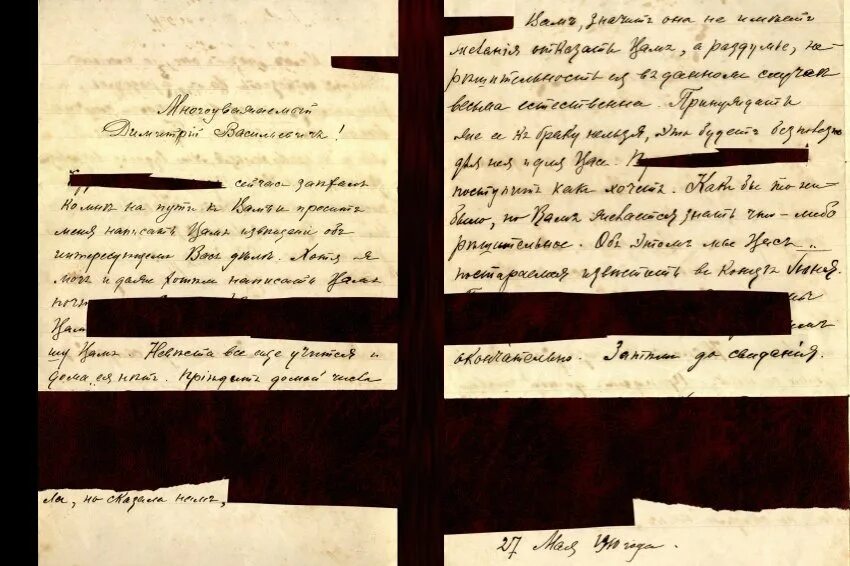 Многоуважаемый
Димитрій Васильевичъ!
сейчас заѣхалъ
ко мнѣ на пути к Вамъ и проситъ
меня написать Вамъ извѣщеніе объ
интересующемъ Васъ дѣлѣ. Хотя я
могъ и даже хотѣлъ написать Вамъ
Вамъ
шу Вамъ. Невѣста все еще учится и
дома ея нѣтъ. Пріѣдетъ домой числа
ла, но сказала намъ,
Вамъ, значитъ она не имѣетъ
желанія отказать Вамъ, а раздумье, не-
рѣшительность ея въ данномъ случаѣ
весьма естественна. Принуждать
же ее къ браку нельзя,
для нея и для Васъ.
поступитъ какъ хочетъ. Какъ бы то ни
было, но Вамъ желается знать что-либо
рѣшительное. Объ этомъ мы Васъ
постараемся извѣстить въ концѣ Іюня.
окончательно. Затѣмъ до свиданія.
27 Мая 1910 года.